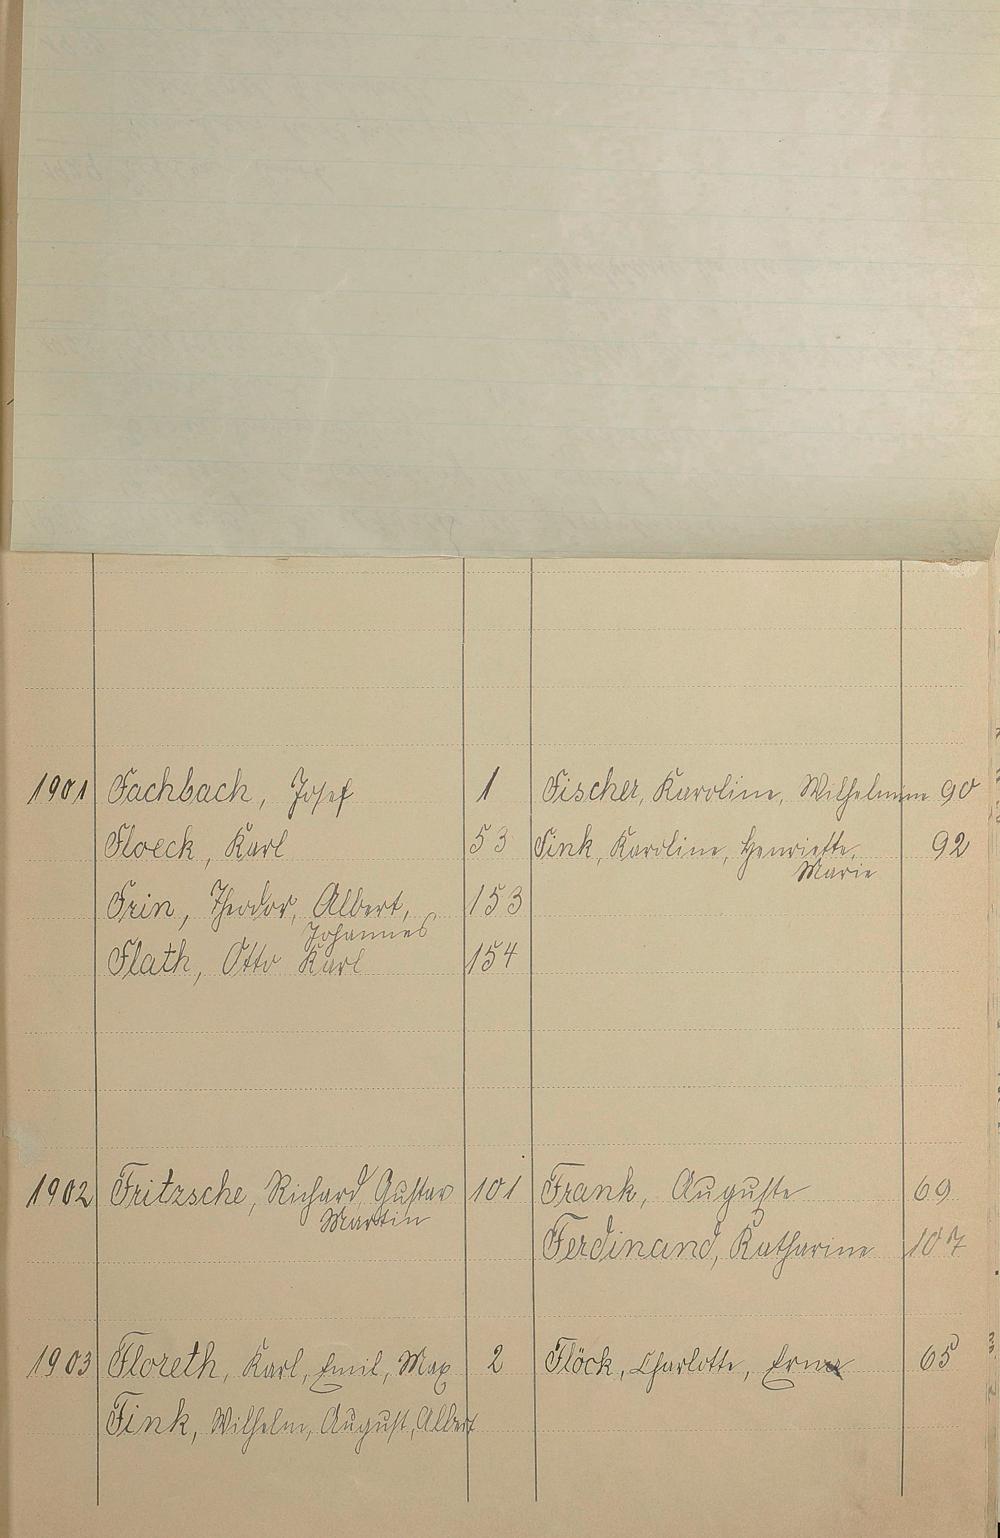 1901 Fachbach, Josef 1 Fischer, Karoline, Wilhelmine 90
Floeck, Karl 53 Fink, Karoline, Henriette, 92
Marie
Frin, Theodor, Albert, 153
Johannes
Flath, Otto Karl 154
1902 Fritzsche, Richard, Gustav 101 Frank, Auguste 69
Martin
Ferdinand, Katharine 107
1903 Floreth, Karl, Emil, Max 2 Flöck, Charlotte, Erna 65
Fink, Wilhelm, August, Albert